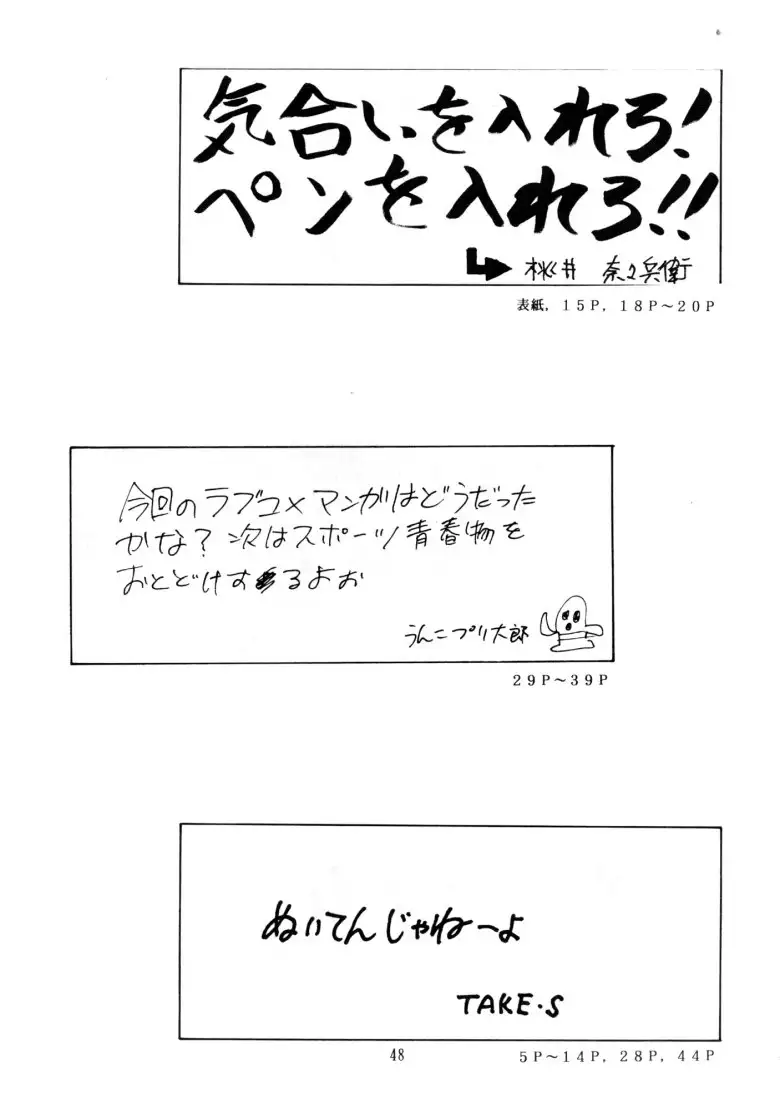 気合いを入れろ!
ペンを入れろ!!
桃井 奈々兵衛
表紙，15P，18P～20P
今回のラブコメマンガはどうだった
かな？次はスポーツ青春物を
おとどけするよお
うんこプリ太郎
29P～39P
ぬいてんじゃねーよ
TAKE・S
48
5P～14P，28P，44P